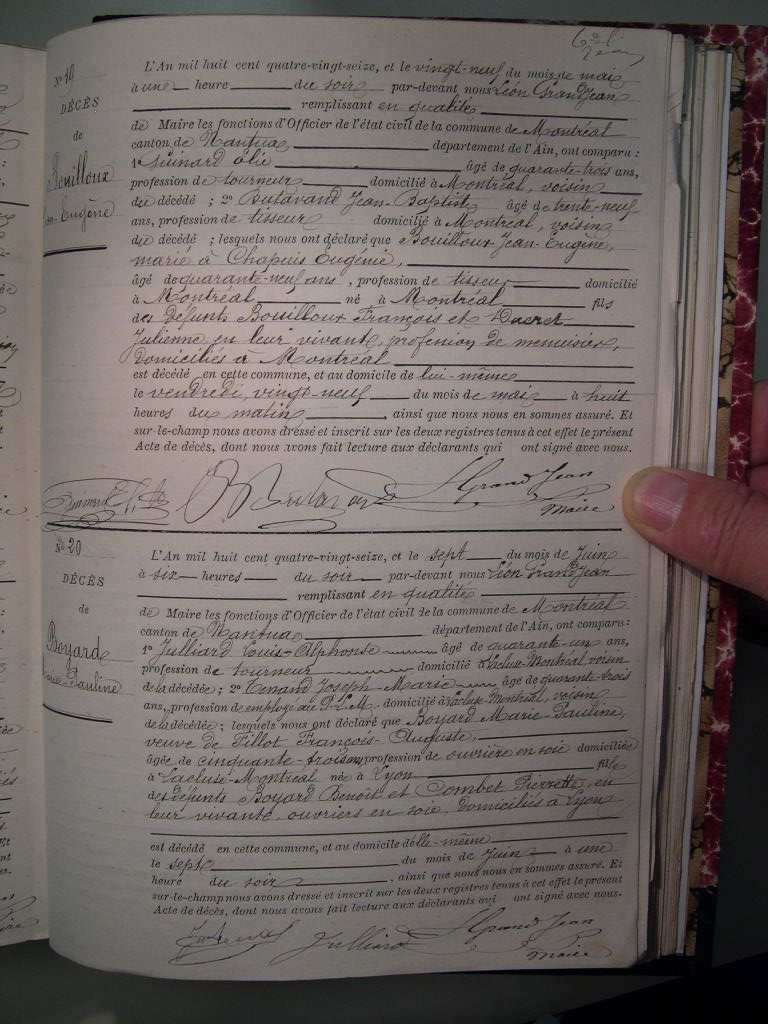 N° 19
DÉCÈS
de
Bouilloux
Jean-Eugène
L'An mil huit cent quatre-vingt-seize, et le vingt-neuf du mois de mai
à une heure du soir par-devant nous Léon Grandjean
remplissant en qualité
de Maire les fonctions d'Officier de l'état civil de la commune de Montréal
canton de Nantua département de l'Ain, ont comparu :
1° âgé de quarante-trois ans,
profession de tourneur domicilié à Montréal, voisin
du décédé ; 2° Butavand Jean-Baptiste âgé de trente-neuf
ans, profession de tisseur domicilié à Montréal, voisin
du décédé ; lesquels nous ont déclaré que Bouilloux Jean-Eugène,
marié à Chapuis Eugénie,
âgé de quarante-neuf ans, profession de tisseur domicilié
à Montréal né à Montréal fils
des défunts Bouilloux François et Ducret
Julienne en leur vivant, profession de menuisier,
domiciliés à Montréal
est décédé en cette commune, et au domicile de lui-même
le vendredi, vingt-neuf du mois de mai à huit
heures du matin, ainsi que nous nous en sommes assuré. Et
sur-le-champ nous avons dressé et inscrit sur les deux registres tenus à cet effet le présent
Acte de décès, dont nous avons fait lecture aux déclarants qui ont signé avec nous.
Butavand LGrandJean
Maire
N° 20
DÉCÈS
de
Boyard
Marie-Pauline
L'An mil huit cent quatre-vingt-seize, et le sept du mois de Juin
à six heures du soir par-devant nous Léon Grandjean
remplissant en qualité
de Maire les fonctions d'Officier de l'état civil de la commune de Montréal
canton de Nantua département de l'Ain, ont comparu :
1° Julliard Louis-Alphonse âgé de quarante-un ans,
profession de tourneur domicilié à Lacluse-Montréal voisin
de la décédée ; 2° Tenand Joseph-Marie âgé de quarante-trois
ans, profession de employé au P-L-M. domicilié à Lacluse-Montréal, voisin
de la décédée ; lesquels nous ont déclaré que Boyard Marie-Pauline,
veuve de Tillot François-Auguste,
âgée de cinquante-trois ans, profession de ouvrière en soie domiciliée
à Lacluse-Montréal née à Lyon fille
des défunts Boyard Benoit et Combet Pierrette, en
leur vivant, ouvriers en soie, domiciliés à Lyon
est décédé en cette commune, et au domicile d'elle-même
le sept du mois de Juin à une
heure du soir, ainsi que nous nous en sommes assuré. Et
sur-le-champ nous avons dressé et inscrit sur les deux registres tenus à cet effet le présent
Acte de décès, dont nous avons fait lecture aux déclarants qui ont signé avec nous.
Julliard LGrandJean
Maire